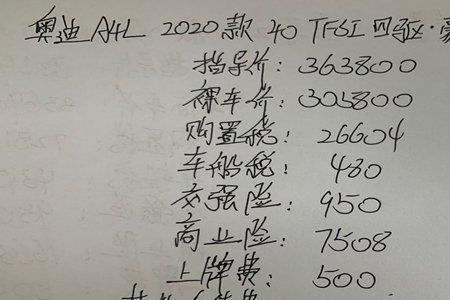 奥迪A4L 2020款 40 TFSI 四驱·豪
指导价: 363800
裸车价: 305800
购置税: 26604
车船税: 480
交强险: 950
商业险: 7508
上牌费: 500